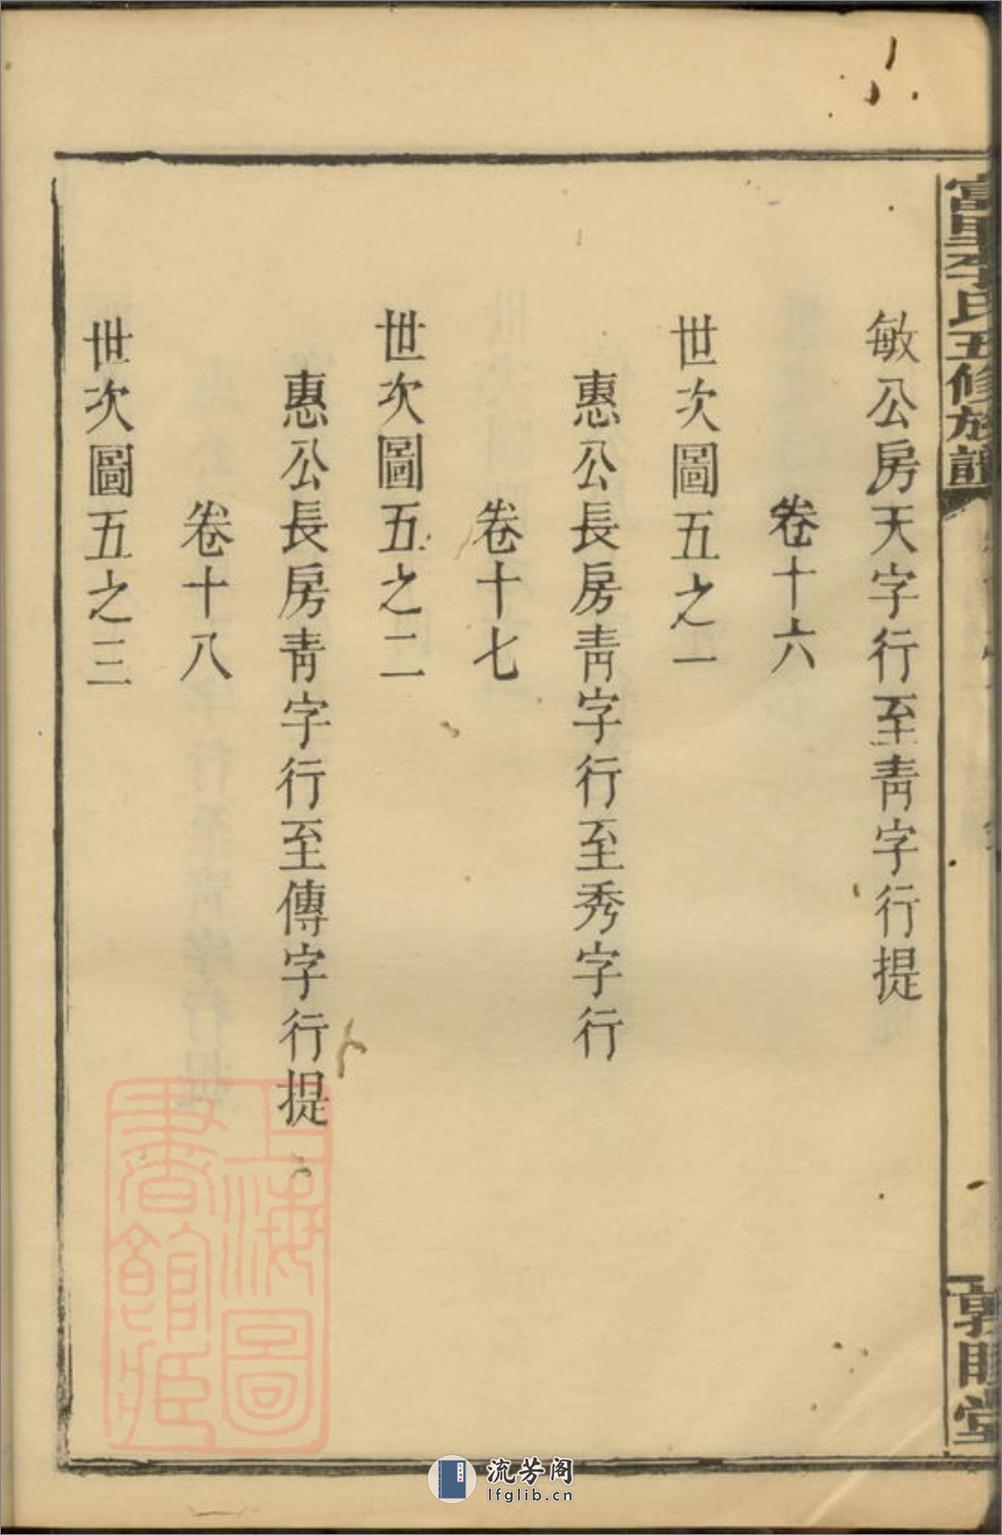 敏公房天字行至青字行提
卷十六
世次圖五之一
惠公長房青字行至秀字行
卷十七
世次圖五之二
惠公長房青字行至傳字行提
卷十八
世次圖五之三
李氏五修族譜
敦睦堂
上海圖書館藏
流芳阁
lfglib.cn